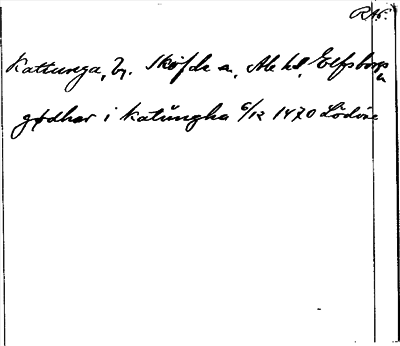 R 16.
Kattunga, by. Sköfde a, Ale hd, Elfsborgs
n
gødhar i katŭngha 6/12 1470 Lödöse